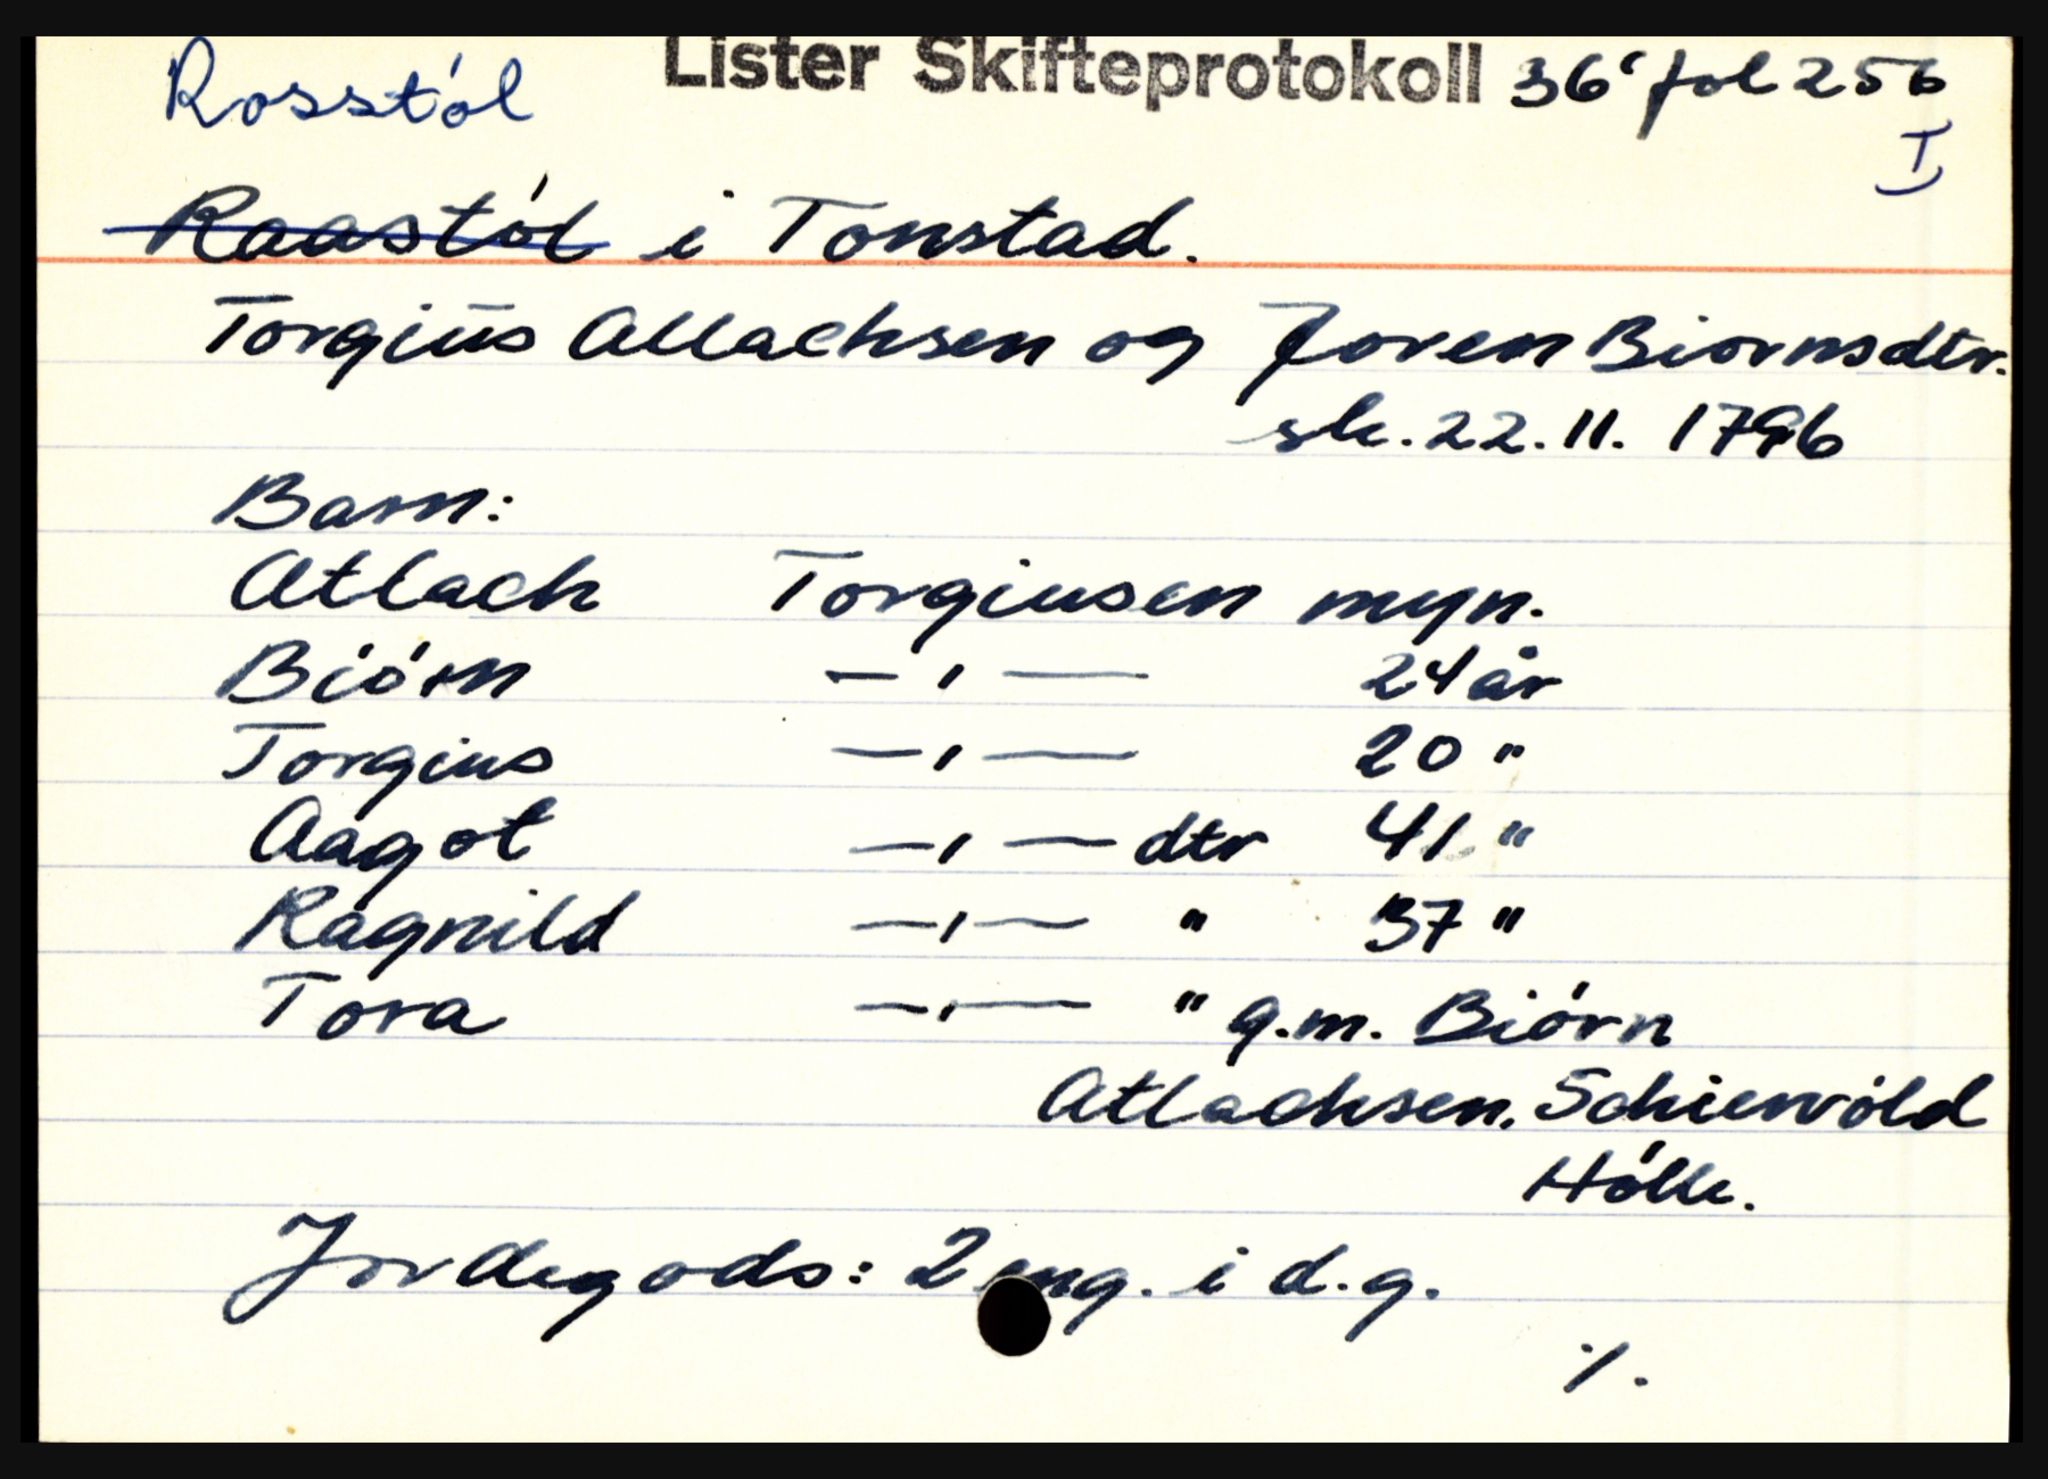 Rosstól Lister Skifteprotokoll 36' fol 256
I
Raastól i Tonstad.
Torgius Allachsen og Joren Biornsdtr.
sk. 22.11. 1796
Barn:
Atlach Torgiusen myn.
Biórn —,— 24 år
Torgius —,— 20 "
Aagot —,— dtr 41 "
Ragnild —,— " 37 "
Tora —,— " g.m. Biórn
Atlachsen. Schiervóld
Hólle.
Jordegods: 2 eng. i d.g.
./.